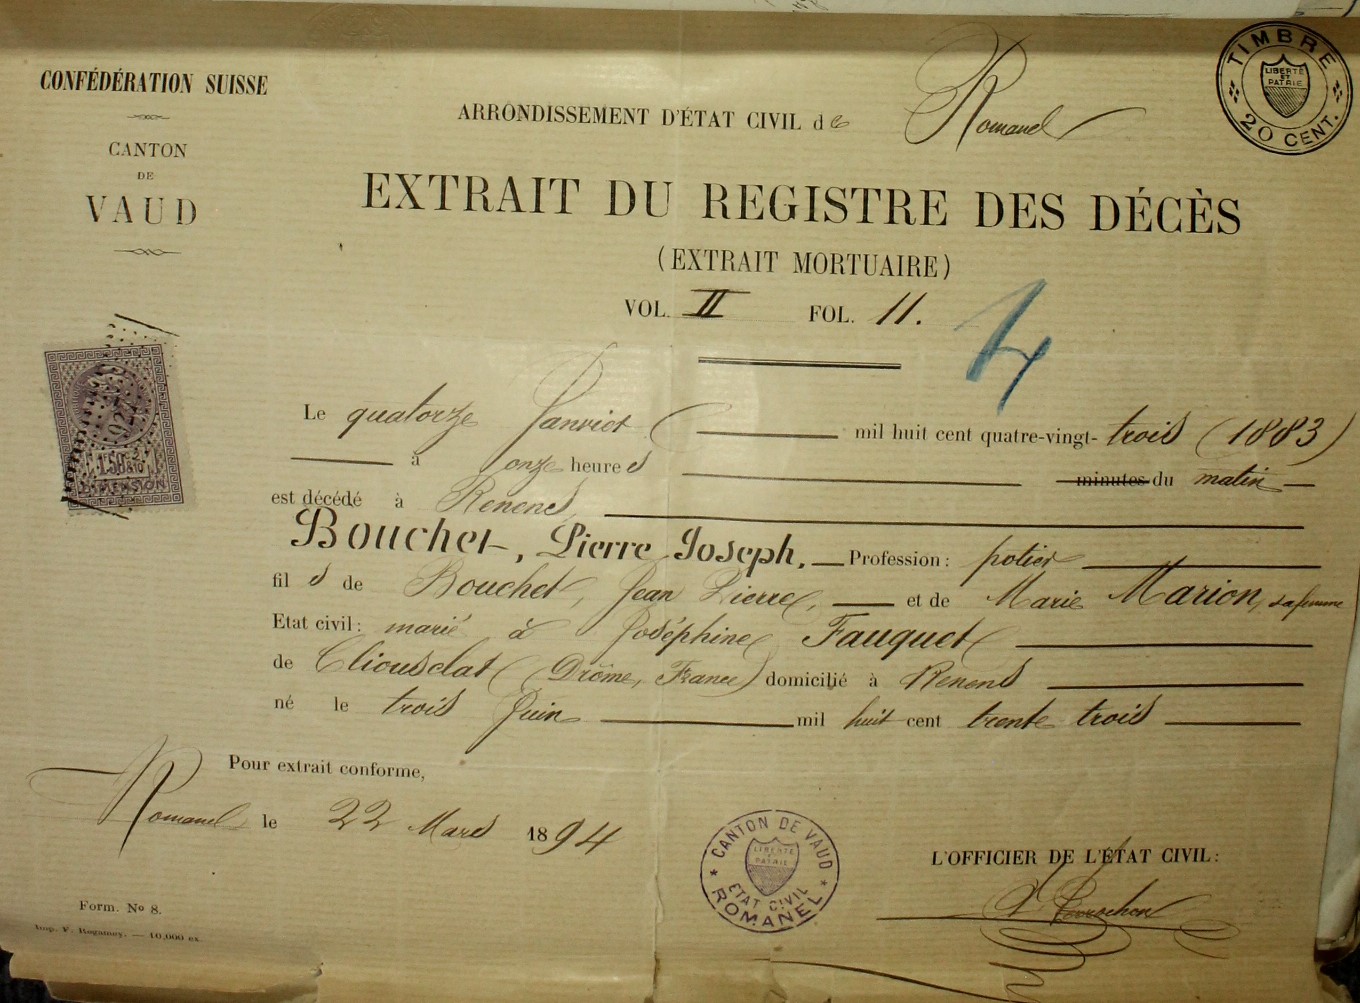 CONFÉDÉRATION SUISSE
CANTON
DE
VAUD
TIMBRE
LIBERTÉ
ET
PATRIE
20 CENT.
ARRONDISSEMENT D'ÉTAT CIVIL de Romanel
EXTRAIT DU REGISTRE DES DÉCÈS
(EXTRAIT MORTUAIRE)
VOL. II FOL. 11.
4
1.50
DIMENSION
Le quatorze Janvier mil huit cent quatre-vingt-trois (1883)
à onze heures minutes du matin
est décédé à Renens,
Bouchet, Pierre Joseph, Profession: potier
fils de Bouchet, Jean Pierre, et de Marie Marion, sa femme
Etat civil: marié à Joséphine Fauquet
de Cliousclat (Drôme, France) domicilié à Renens
né le trois Juin mil huit cent trente trois
Pour extrait conforme,
Romanel le 22 Mars 1894
CANTON DE VAUD
LIBERTÉ
ET
PATRIE
ETAT CIVIL
ROMANEL
L'OFFICIER DE L'ÉTAT CIVIL:
Form. No 8.
Imp. F. Regamey. — 10,000 ex.